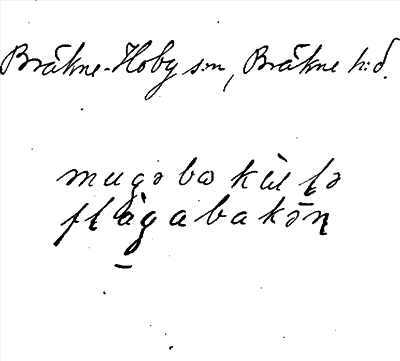 Bräkne-Hoby s:n, Bräkne h:d.
mugə bα kùl fə
flàgabakən